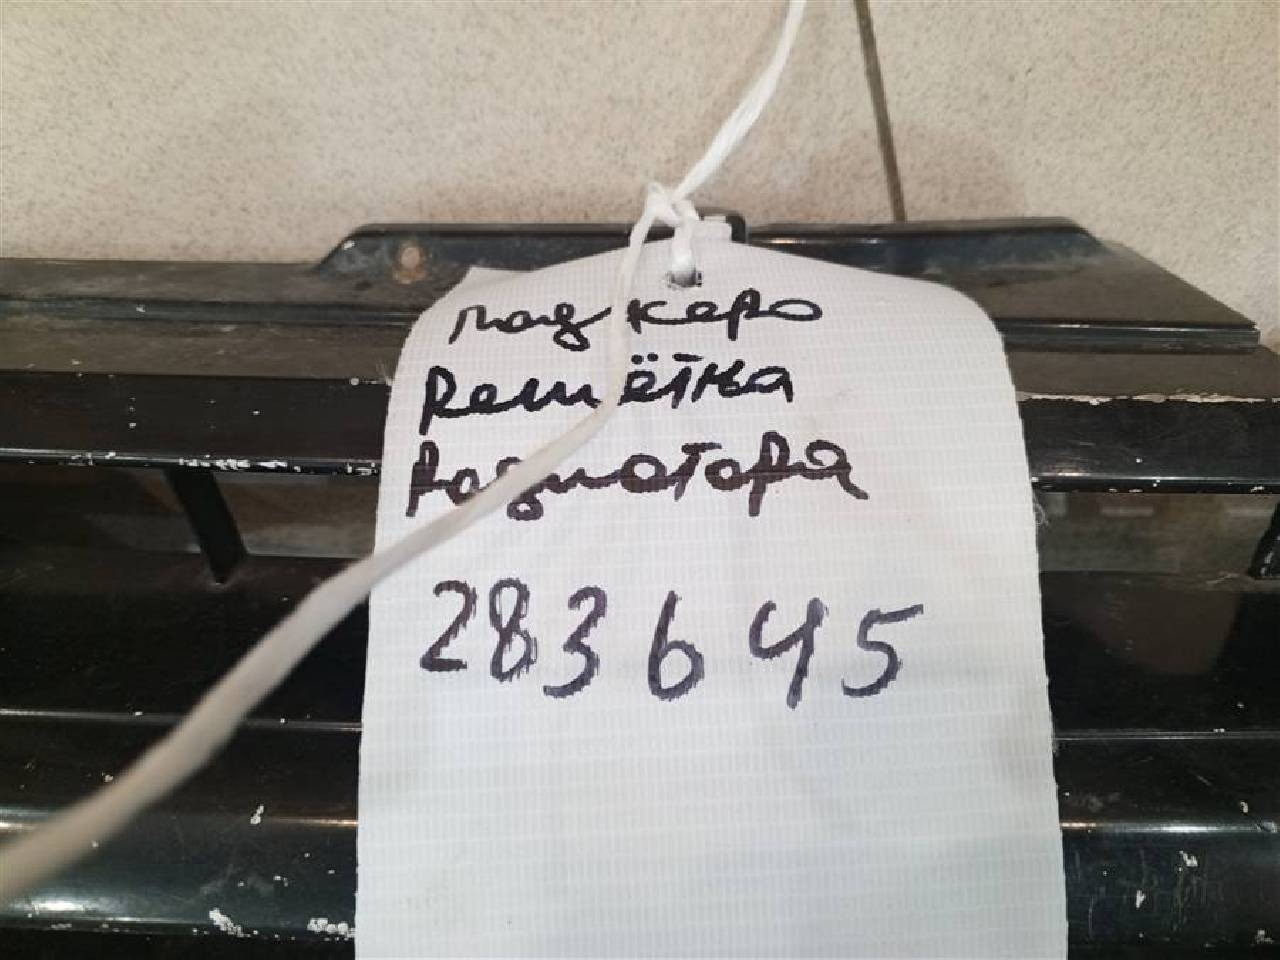 паджеро
Решётка
Радиатора
283645